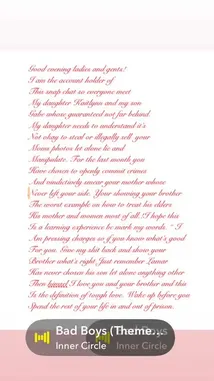 Good evening ladies and gents!
I am the account holder of
This snap chat so everyone meet
My daughter Kaitlynn and my son
Gabe whose guaranteed not far behind
My daughter needs to understand it's
Not okay to steal or illegally sell your
Moms photos let alone lie and
Manipulate. For the last month you
Have chosen to openly commit crimes
And vindictively smear your mother whose
Never left your side. Your showing your brother
The worst example on how to treat his elders
His mother and women most of all. I hope this
Is a learning experience be mark my words. " I
Am pressing charges so if you know what's good
For you. Give my shit back and show your
Brother what's right Just remember Lamar
Has never chosen his son let alone anything other
Then himself I love you and your brother and this
Is the definition of tough love. Wake up before you
Spend the rest of your life in and out of prison.
Bad Boys (Theme...
Inner Circle
Inner Circle